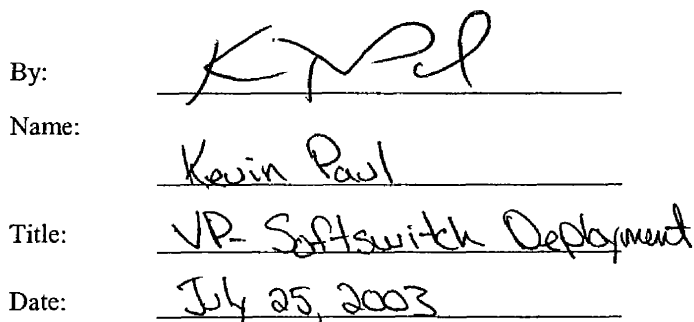 By:
Name:
Kevin Paul
Title: VP- Softswitch Deployment
Date: July 25, 2003